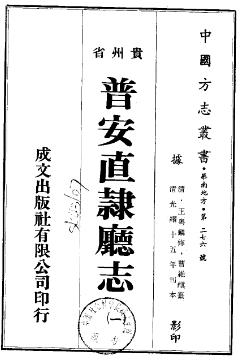 中國方志叢書・華南地方・第二七六號
據
清・王粵麟修・曹維祺纂
清光緒十五年刊本
影印
貴州省
普安直隸廳志
成文出版社有限公司印行